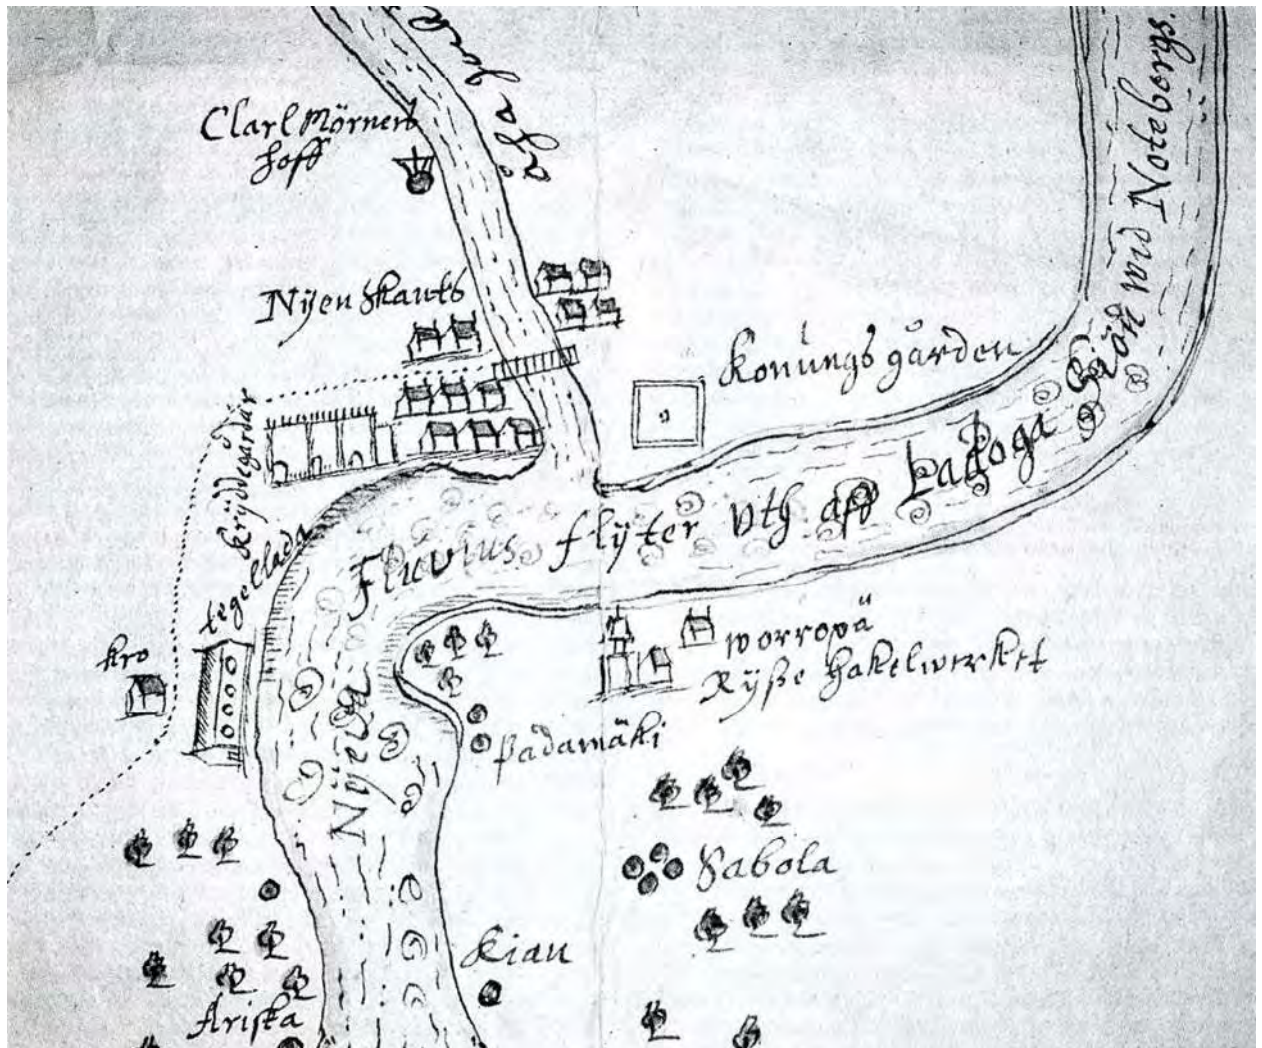 Clarl Mörners
hoff
Nÿen skants
Konungs gården
Krÿddegårdär
tegellada
Kro
Fluvius flÿter vth aff Ladoga
Nÿeva
worropä
Rÿße hakelwerket
Padamäki
Sabola
Kiau
Ariska